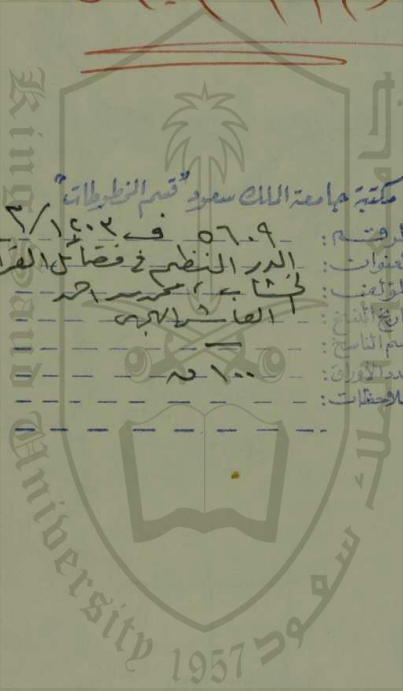 مكتبة جامعة الملك سعود "قسم المخطوطات"
الرقم: ٥٦٠٩ ف ١٢٠٣/٣
العنوان: الدر النظيم في فضائل القرآ
المؤلف: الخشاب، محمد بن احمد
تاريخ النسخ: العاشر الهجري
اسم الناسخ: —
عدد الأوراق: ١٠٠ ق
ملاحظات:
King Saud University
1957